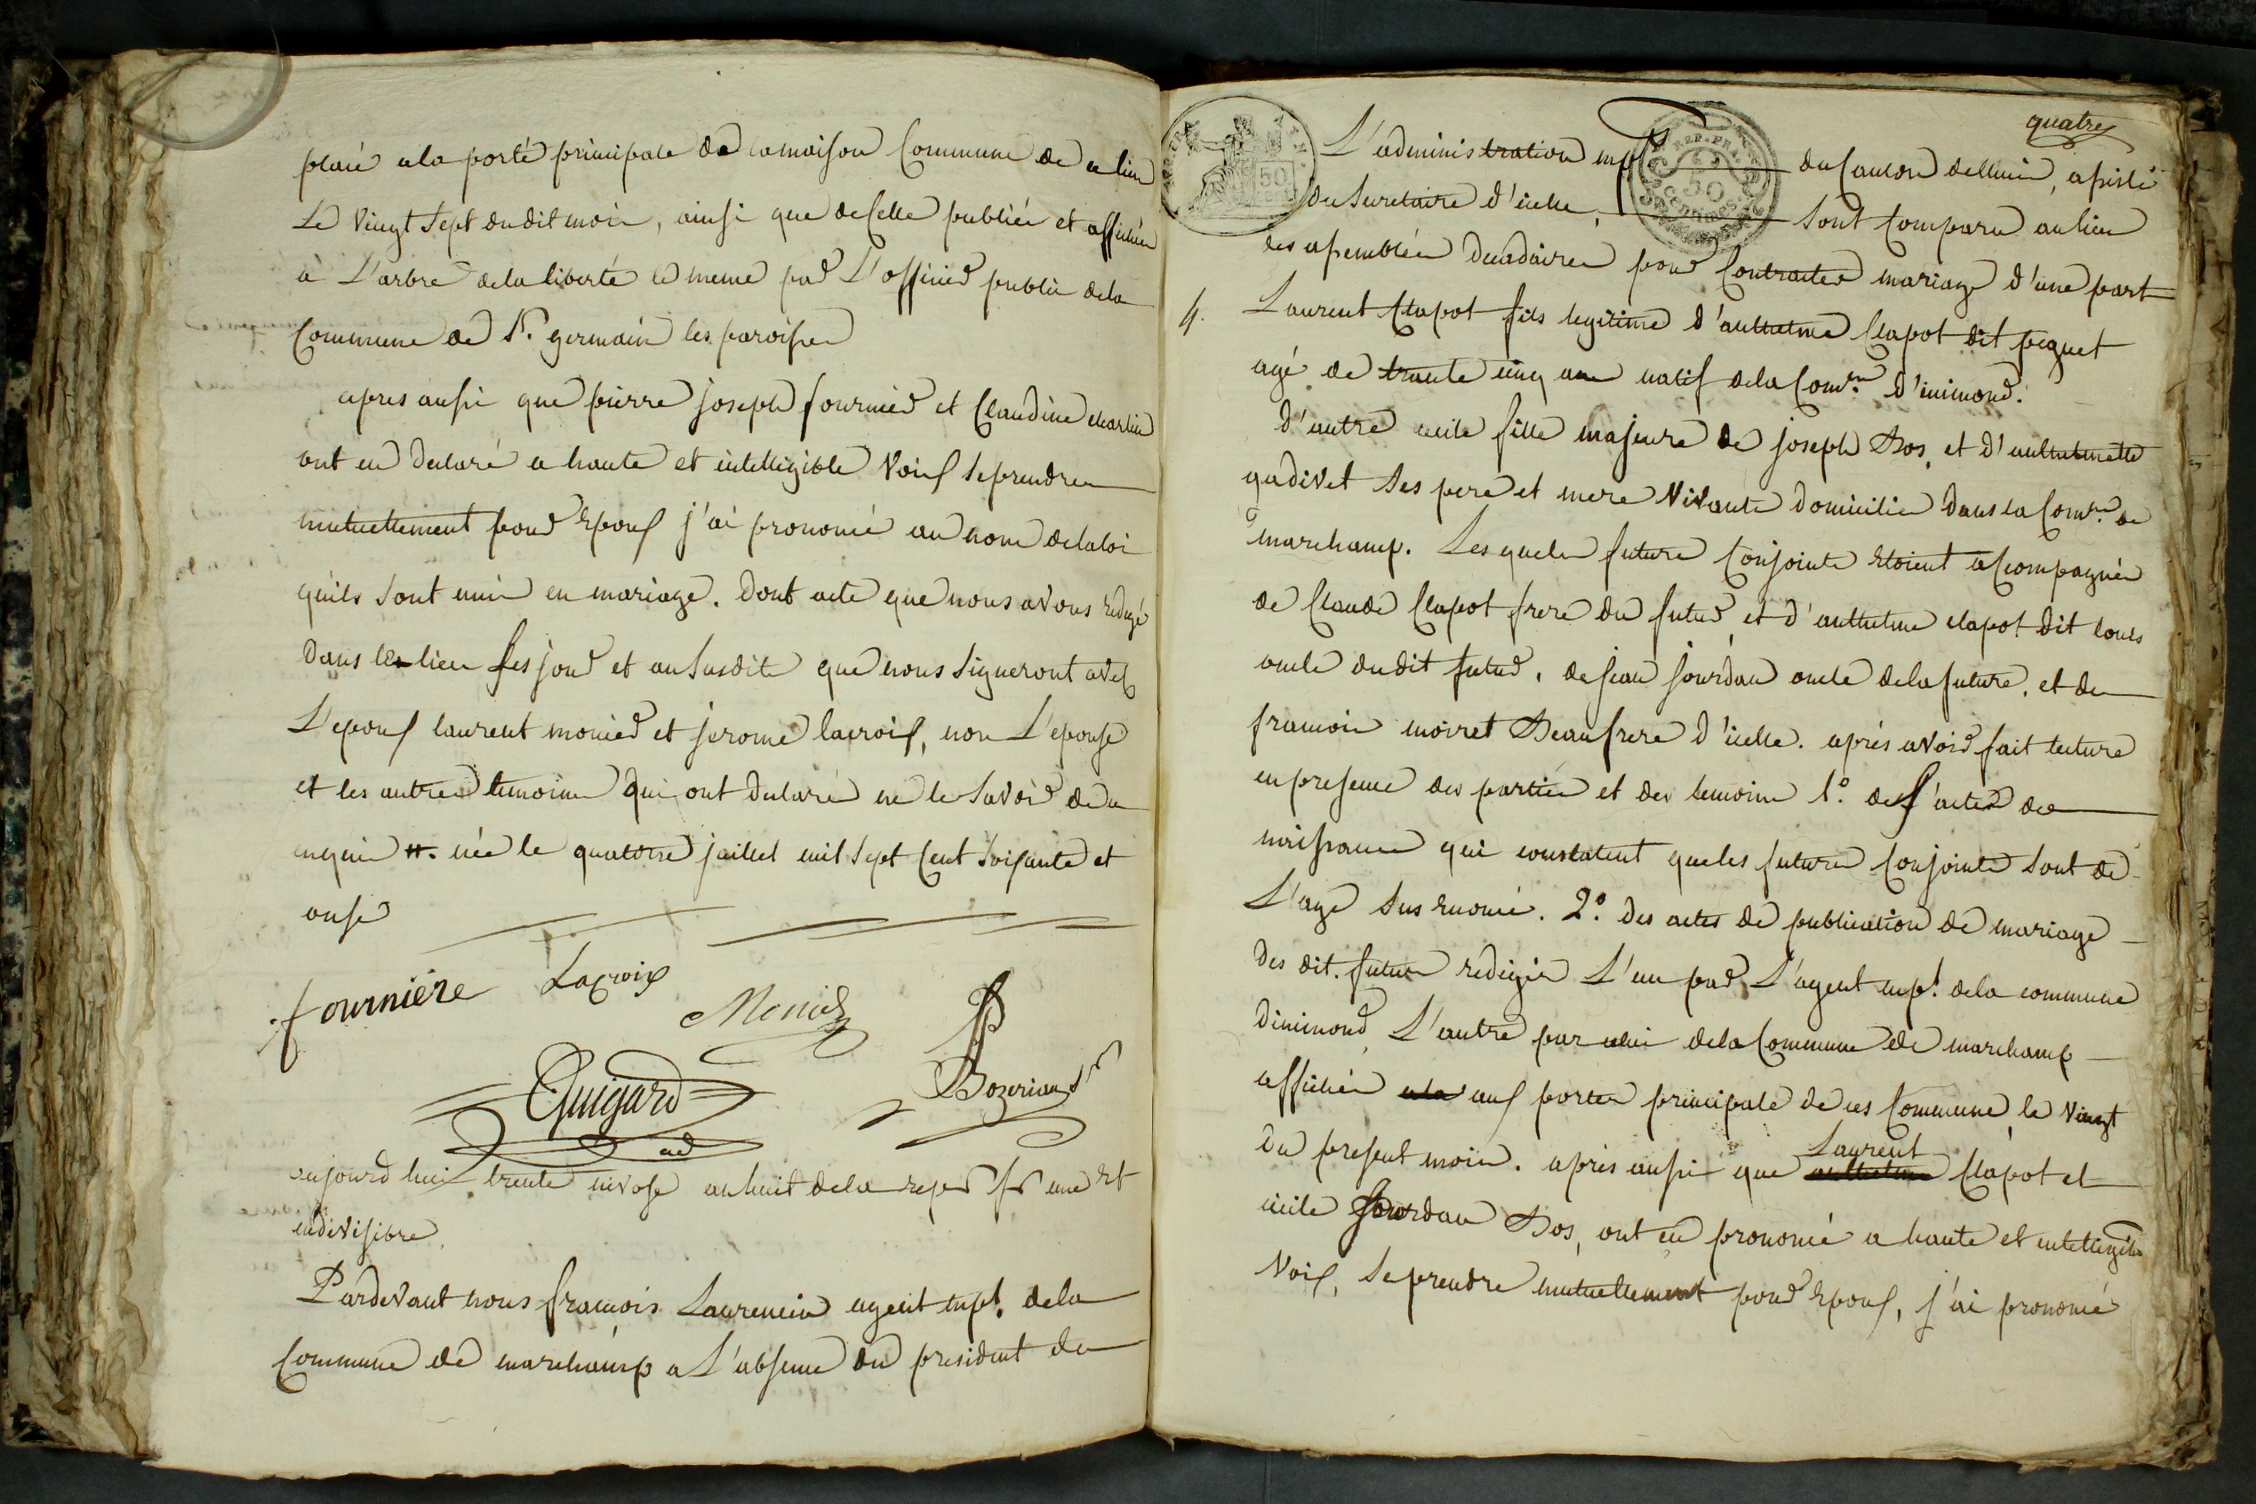 placé a la porté principale de la maison Commune de ce lieu
Le vingt Sept du dit mois, ainsi que de Celle publiée et affichée
à L'arbre de la liberté le meme par L'officier public de la
Commune de St. germain les paroisses
apres aussi que pierre joseph fournier et Claudine charlin
ont eu declaré a haute et intelligible Voix se prendre
mutuellement pour Epoux j'ai prononcé au nom de la loi
qu'ils Sont unis en mariage. Dont acte que nous avons redigé
Dans les lieu jour et an Susdits que nous Signeront avec
L'epoux laurent monier et jerome lacroix, non L'epouse
et les autres temoins qui ont declaré ne le Savoir de ce
enquis #. née le quatorze juillet mil Sept Cent Soixante et
onse
fournière Lacroix
Monier
Guigard Bozerian
aujourd'hui trente nivose an huit de la rep. fr. une et
indivisibre
Pardevant nous francois Laurencin agent mpl. de la
Commune de marchamp a L'absence du president de
quatre
L'administration mple du Canton de Lhuis, assisté
REP. FRA.
50
Centimes
du Secretaire d'icelle, Sont Comparu au lieu
des assemblées Decadaires pour Contracter mariage d'une part
4. Laurent Clapot fils legitime d'anthelme Clapot dit peguet
agé de trante cinq ans natif de la Comne d'inimond.
D'autre cecile fille majeure de joseph Bos, et d'anthelmette
gadivet Ses pere et mere Vivants Domiciliés Dans la Comne de
marchamp. Les quels futurs Conjoints Etoient accompagnés
de Claude Clapot frere du futur, et d'anthelme clapot dit louis
oncle du dit futur, de jean jourdan oncle de la future, et de
francois moiret Beaufrere d'icelle. aprés avoir fait lecture
en presence des parties et des temoins 1.° des actes de
naissance qui constatent que les futurs Conjoints Sont de
L'age Sus Enoncé. 2.° Des actes de publication de mariage
Des dit. futurs redigés L'un par L'agent mpl. de la commune
Dinimond, L'autre par celui de la Commune de marchamp
affichés a la aux portes principale de ces Commune, le Vingt
Du present mois. après aussi que Laurent Clapot et
cecile Jourdan Bos, ont eu prononcé a haute et intelligible
Voix, Se prendre mutuellement pour Epoux, j'ai prononcé